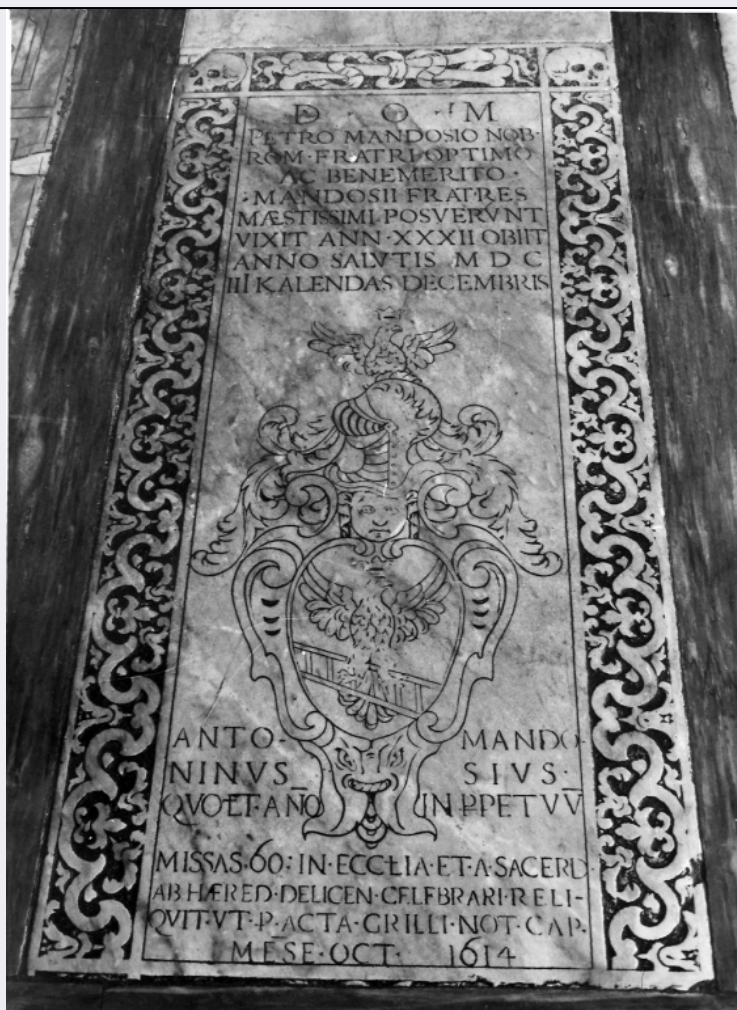 D O M
PETRO MANDOSIO NOB·
ROM·FRATRI OPTIMO
AC BENEMERITO·
·MANDOSII FRATRES
MÆSTISSIMI POSVERVNT
VIXIT ANN·XXXII OBIIT
ANNO SALVTIS M D C
III KALENDAS DECEMBRIS
ANTO- MANDO-
NINVS SIVS·
QVOLET·AÑO IN PPETVV̄
MISSAS·60·IN·ECCLIA·ET·A·SACERD·
AB HÆRED·DELICEN·CELEBRARI·RELI-
QVIT·VT·P·ACTA·GRILLI·NOT·CAP·
MESE·OCT· 1614